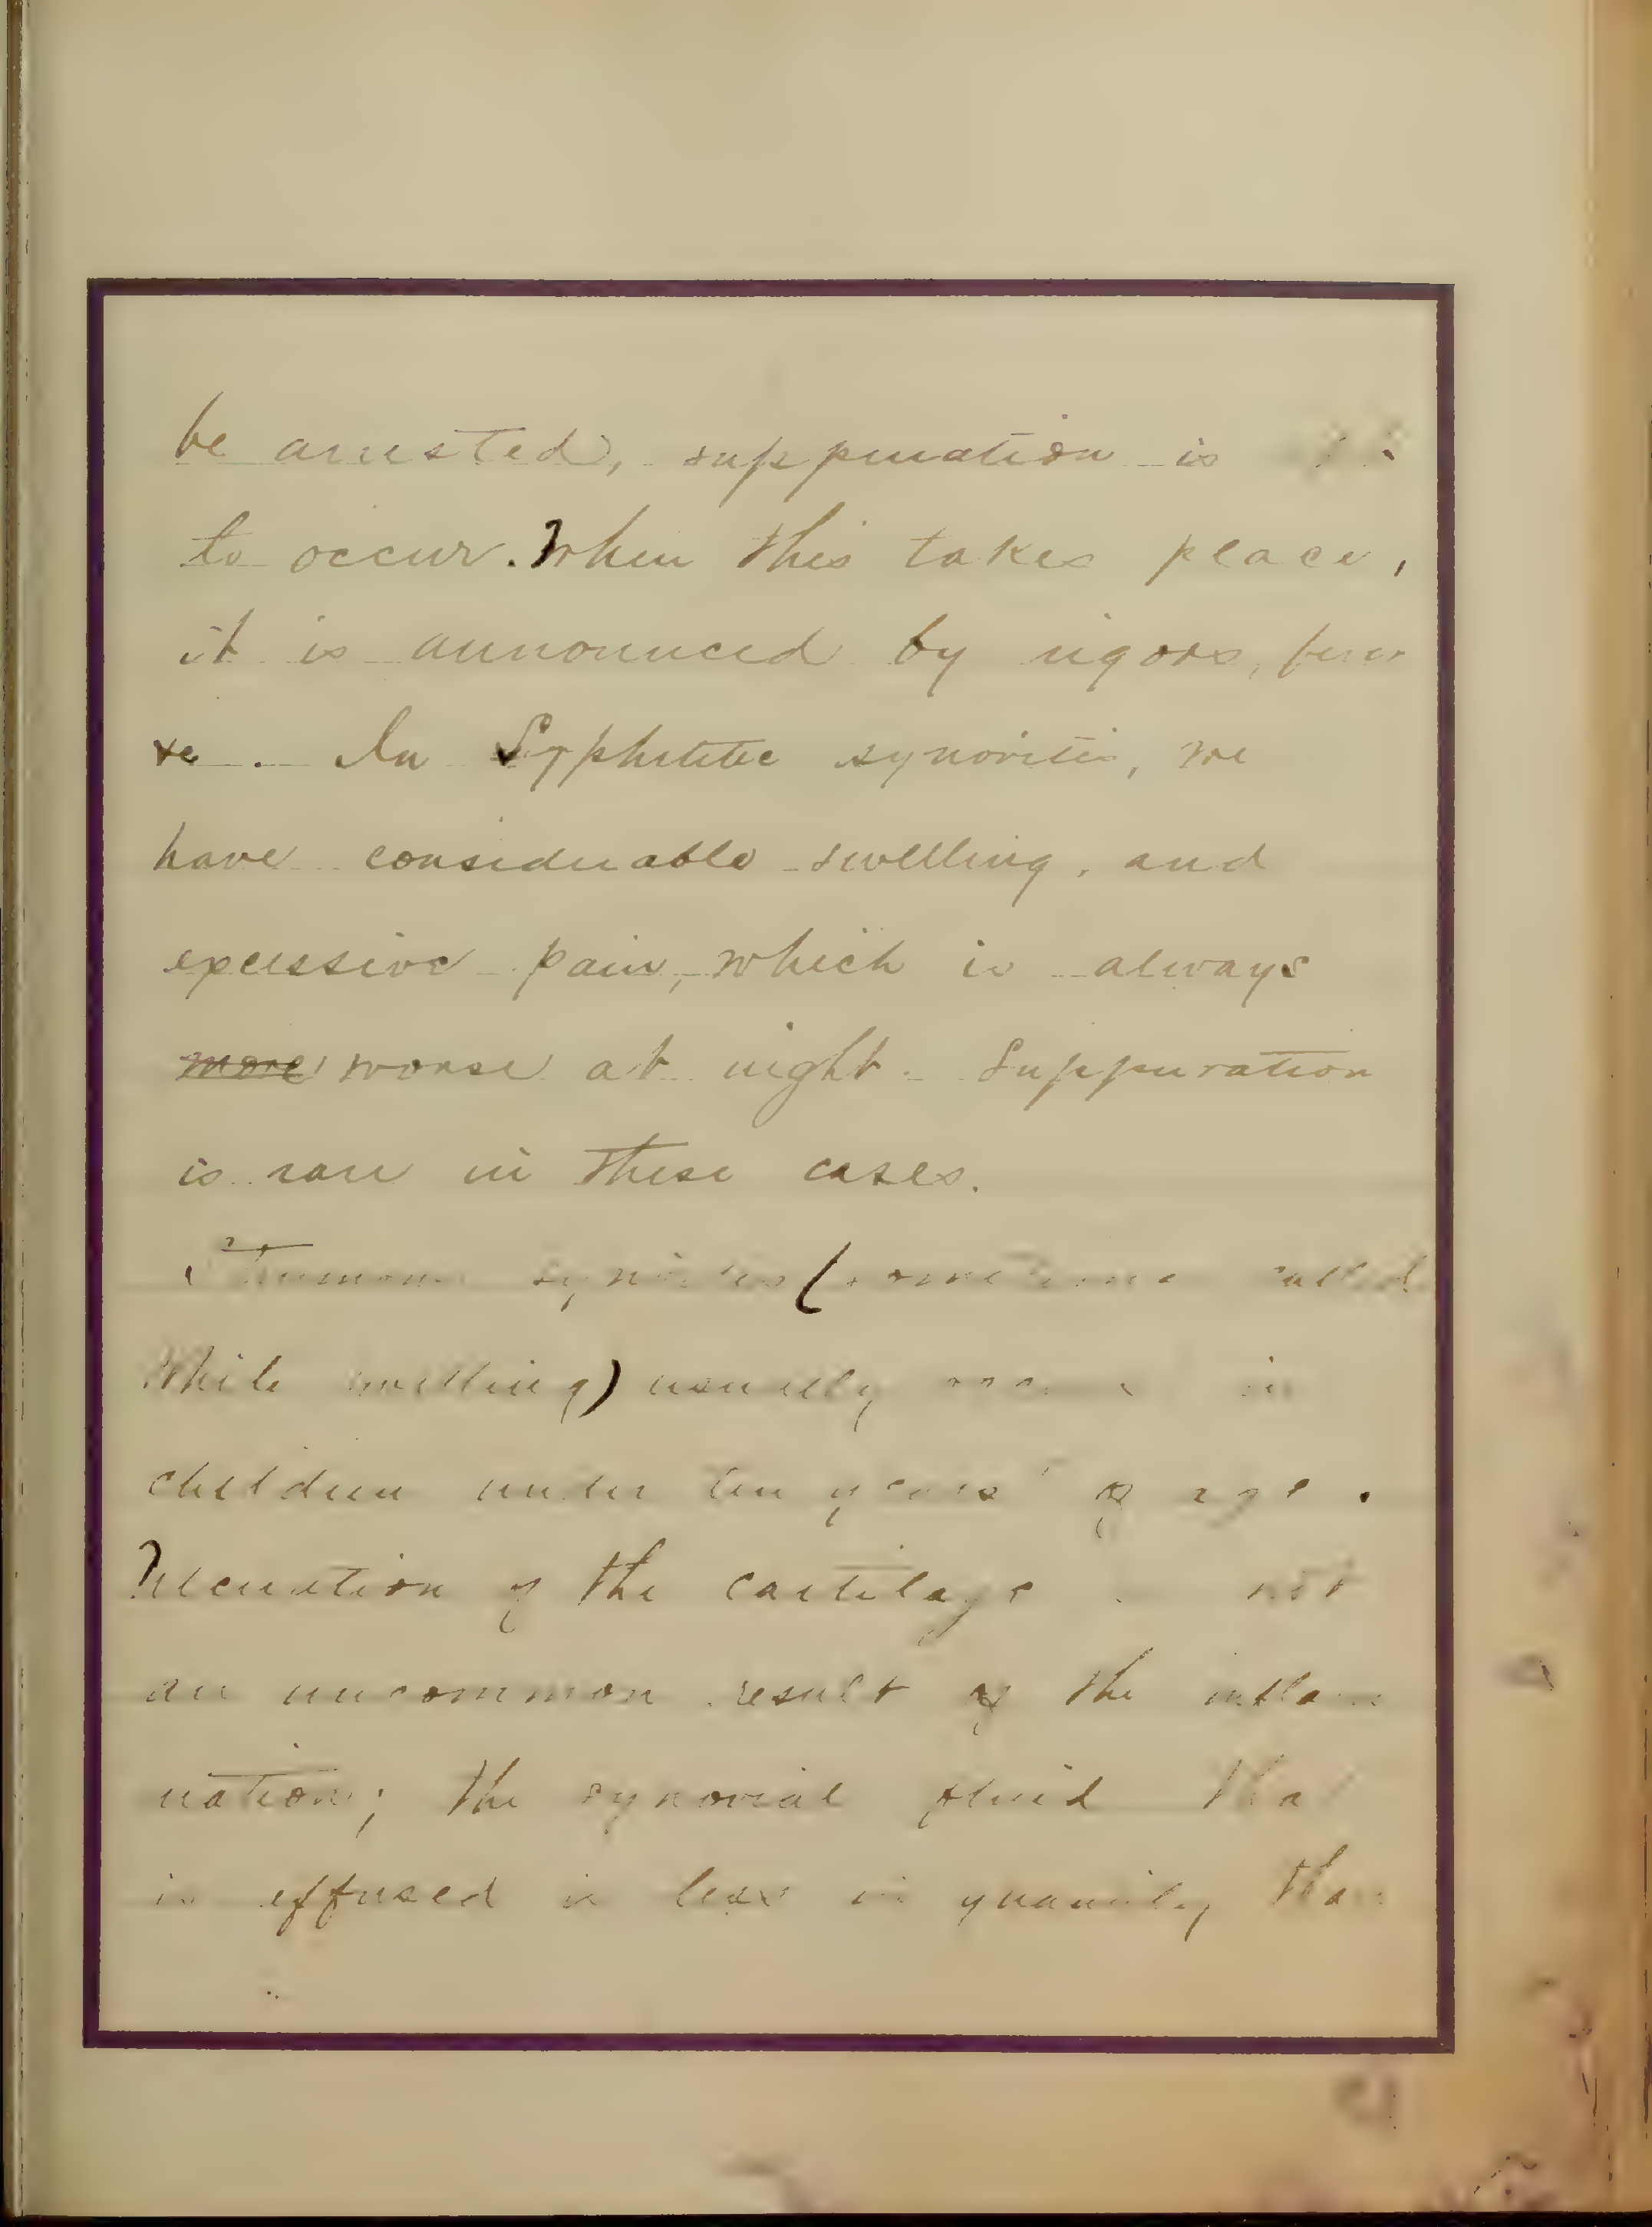 be arrested, suppuration is
to occur. When this takes place,
it is announced by rigors, fever
&c. In Syphilitic synovitis, we
have considerable swelling, and
excessive pain, which is always
more worse at night. Suppuration
is rare in these cases.
Strumous synovitis (sometimes called
White swelling) usually in
children under ten years of age.
Ulceration of the cartilage not
an uncommon result of the inflam
mation; the synovial fluid that
is effused is less in quantity than